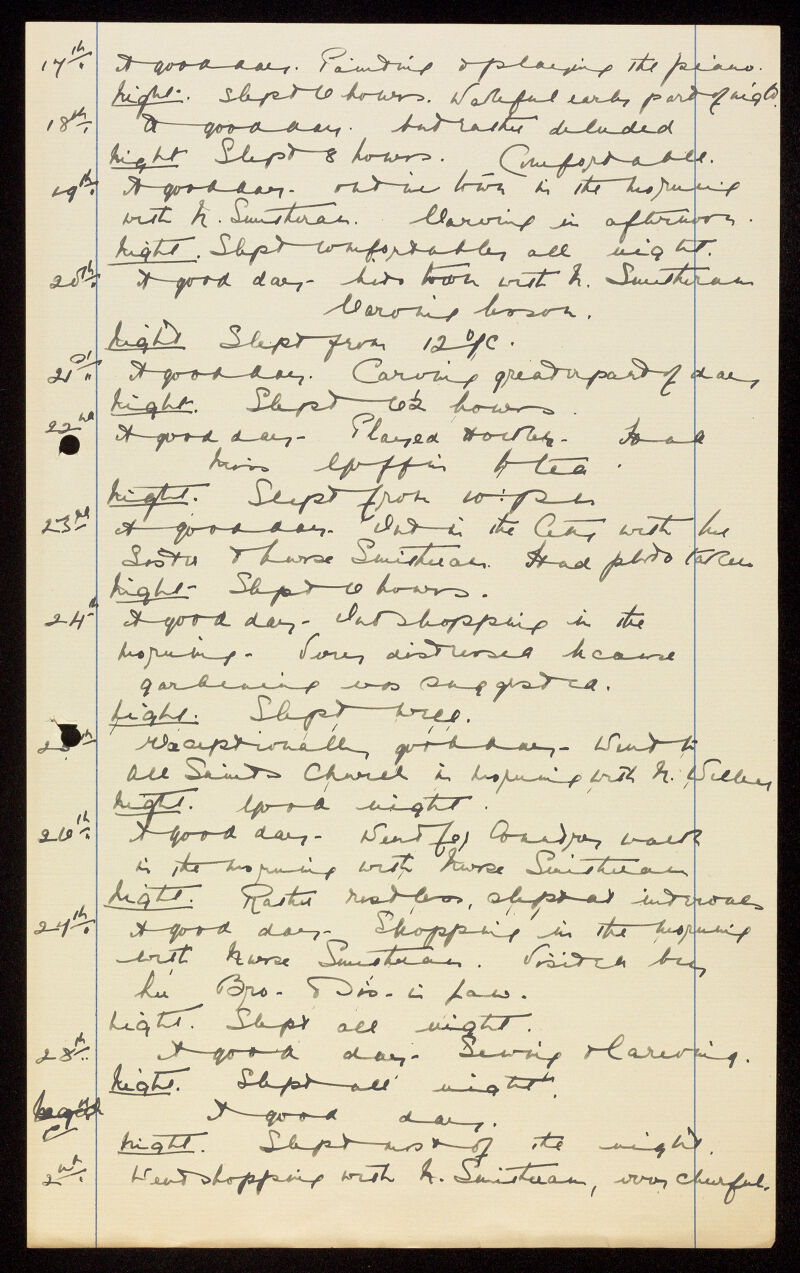 17th. A good day. Painting & playing the piano.
Night. Slept 6 hours. Wakeful early part of night.
18th. A good day. but rather deluded
Night Slept 8 hours. Comfortable.
19th. A good day. out in town in the morning
with N. Smitheram. Carving in afternoon.
Night. Slept comfortably all night.
20th. A good day - Into town with N. Smitheram
Carving lesson.
Night Slept from 12 o/c.
21st. A good day. Carving greater part of day
Night. Slept 6½ hours.
22nd A good day - Played Hockey. Had
Miss to tea.
Night. Slept from 10: pm
23rd A good day. Out in the City with her
Sister & Nurse Smitheram. Had photo taken
Night - Slept 6 hours.
24th A good day - Out shopping in the
morning - Very distressed because
gardening was suggested.
Night. Slept well.
25th exceptionally good day - Went to
All Saints Church in morning with N.
Night. Good night.
26th. A good day - Went for Country walk
in the morning with Nurse Smitheram
Night. Rather restless, slept at intervals
27th. A good day - Shopping in the morning
with Nurse Smitheram. Visited by
her Bro - & Sis - in law.
Night. Slept all night.
28th. A good day - Sewing & Carving.
Night. Slept all night.
A good day.
Night. Slept most of the night.
2nd. Went shopping with N. Smitheram, very cheerful.